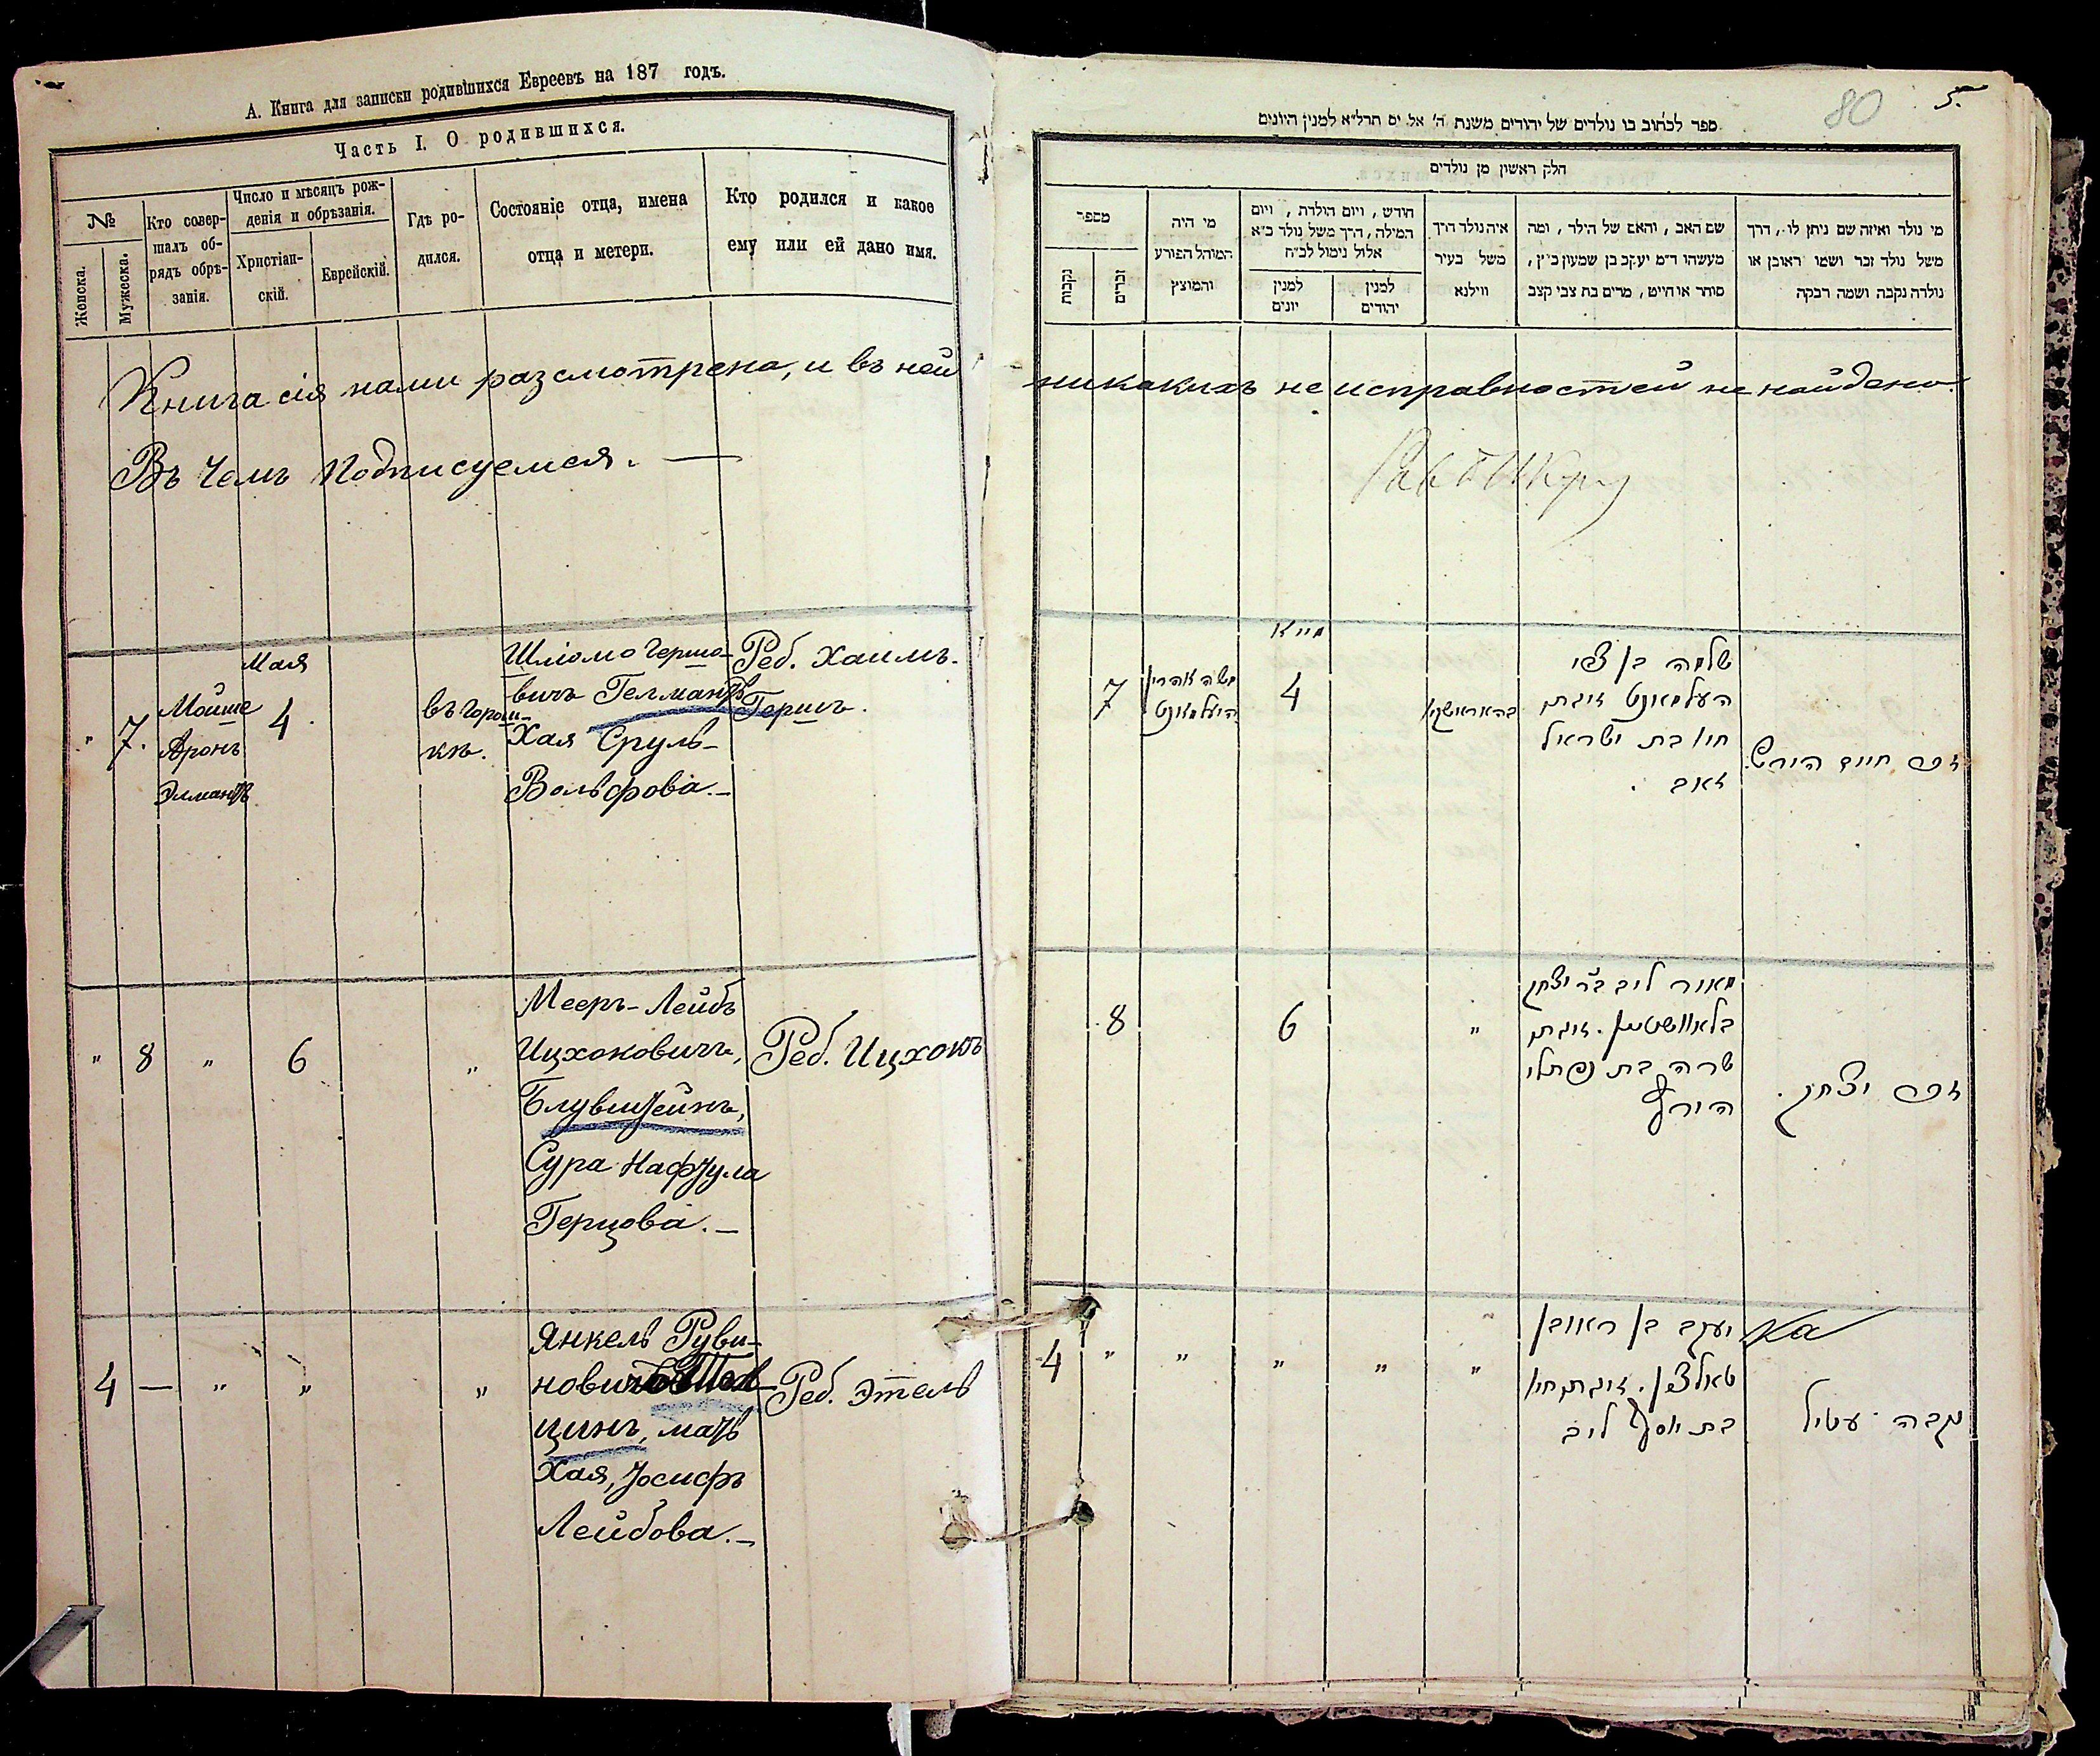 А. Книга для записки родившихся Евреевъ на 187 годъ.
Часть I. О родившихся.
№
Женска.
Мужеска.
Кто совер-
шалъ об-
рядъ обрѣ-
занія.
Число и мѣсяцъ рож-
денія и обрѣзанія.
Христіан-
скій.
Еврейскій.
Гдѣ ро-
дился.
Состояніе отца, имена
отца и метери.
Кто родился и какое
ему или ей дано имя.
Книга сія нами разсмотрена, и въ ней
Въ чемъ подписуемся. —
" 7.
Мойше
Аронъ
Мая
4
въ Горош-
кѣ.
Шліомо Гершо-
вичъ Гелмантъ
Хая Сруль-
Вольфова. —
Реб. Хаимъ-
Гершъ.
" 8 " 6 "
Мееръ-Лейбъ
Ицхоковичъ,
Блувштейнъ,
Сура Нафтула
Герцова. —
Реб. Ицхокъ
4 — " " "
Янкель Руви-
новичъ
цинъ, мать
Хая, Іосифъ
Лейбова. —
Реб. Этель
80
5.
ספר לכתוב בו נולדים של יהודים משנת ה' אל. ים תרל״א למנין היונים
חלק ראשון מן נולדים
מספר
נקבות
זכרים
מי היה
המוהל הפורע
והמוצץ
חודש, ויום הולדת, ויום
המילה, דרך משל נולד כ״א
אלול נימול לכ״ח
למנין
יונים
למנין
יהודים
איה נולד דרך
משל בעיר
ווילנא
שם האב, והאם של הילד, ומה
מעשהו ד״מ יעקב בן שמעון כ״ץ,
סוחר או חייט, מרים בת צבי קצב
מי נולד ואיזה שם ניתן לו, דרך
משל נולד זכר ושמו ראובן או
נולדה נקבה ושמה רבקה
никакихъ не исправностей не найдено.
7
משה אהרין
העלמאנט
מייא
4
שלמה בן צבי
העלמאנט זוגתו
חיו בת ישראל
זאב .
זכר חיים הירש.
8 6 "
מאיר ליב בר יצחק
בלאוושטיין. זוגתו
שרה בת נפתלי
הירץ
זכר יצחק.
4 " " " " "
יעקב בן ראובן
טאלצין. זוגתו חיו
בת יוסף ליב
נקבה עטיל